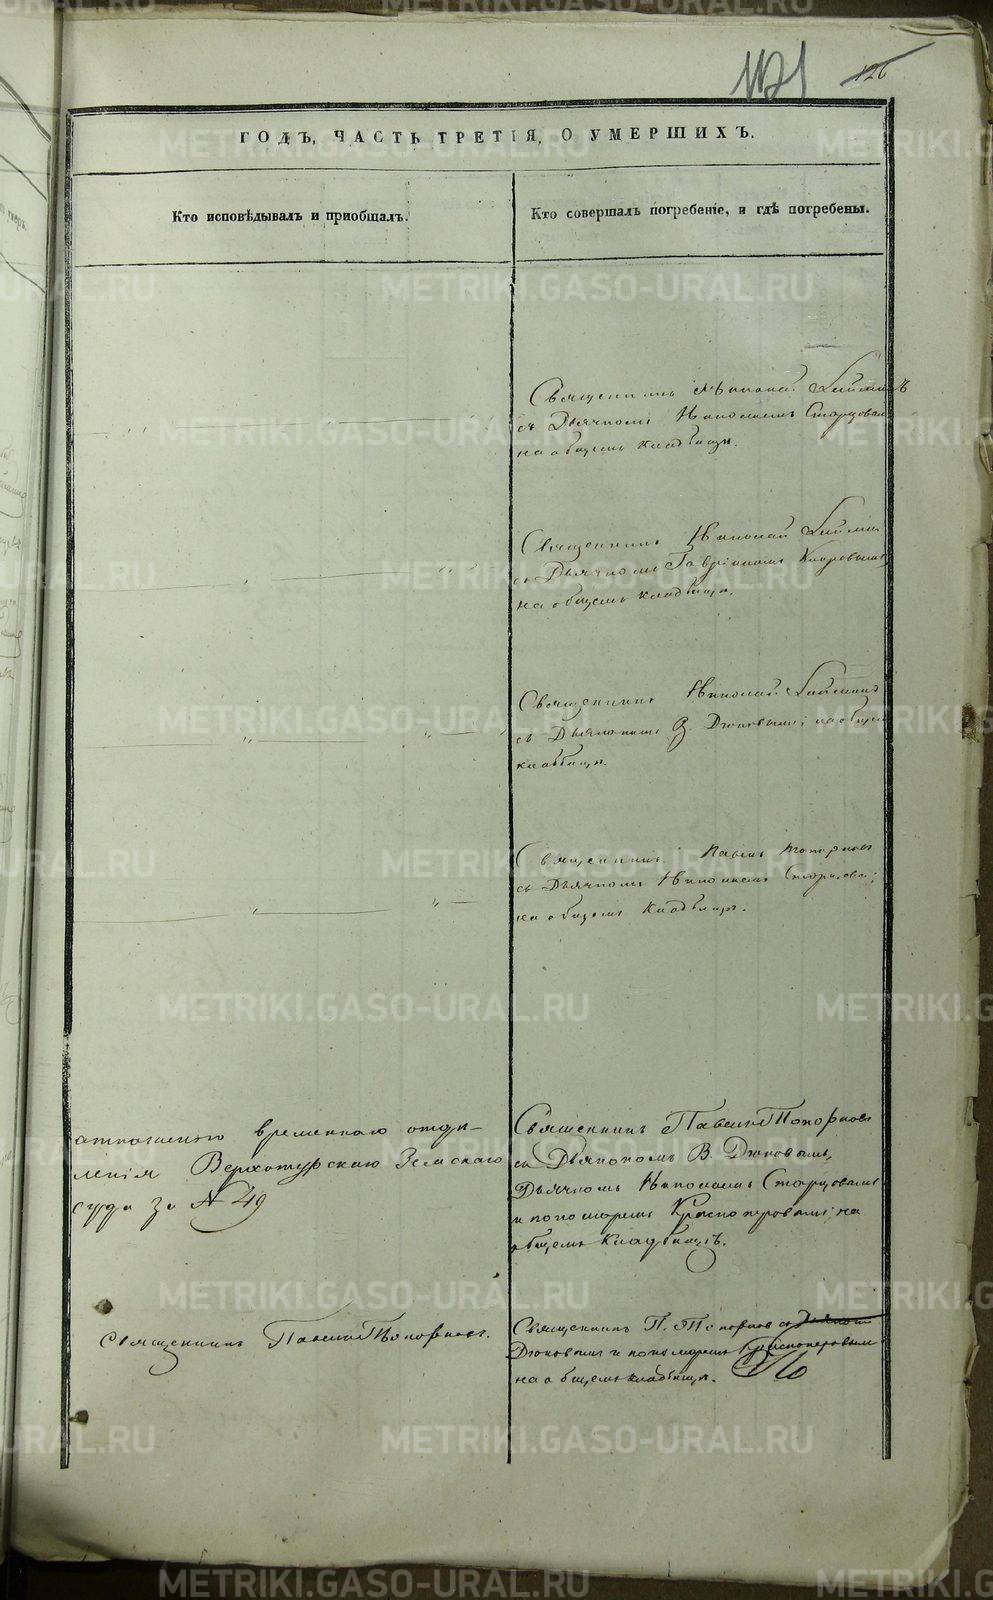 121 126
ГОДЪ, ЧАСТЬ ТРЕТІЯ, О УМЕРШИХЪ.
Кто исповѣдывалъ и пріобщалъ.
Кто совершалъ погребеніе, и гдѣ погребены.
Священникъ Николай
съ Дьячкомъ Николаемъ Старцовымъ
на общемъ кладбищѣ.
Священникъ Николай
съ Дьячкомъ Гавріиломъ
на общемъ кладбищѣ.
Священникъ Николай
съ Дьякономъ В. Дюковымъ на общемъ
кладбищѣ.
Священникъ Павелъ Топорковъ
съ Дьячкомъ Николаемъ Старцовымъ
на общемъ кладбищѣ.
временнаго отдѣ-
ленія Верхотурскаго Земскаго
суда за № 49
Священникъ Павелъ Топорковъ
съ Дьякономъ В. Дюковымъ,
Дьячкомъ Николаемъ Старцовымъ
и пономаремъ Красноперовымъ на
общемъ кладбищѣ.
Священникъ Павелъ Топорковъ.
Священникъ П. Топорковъ съ Дьякономъ
Дюковымъ и пономаремъ Красноперовымъ
на общемъ кладбищѣ.
METRIKI.GASO-URAL.RU